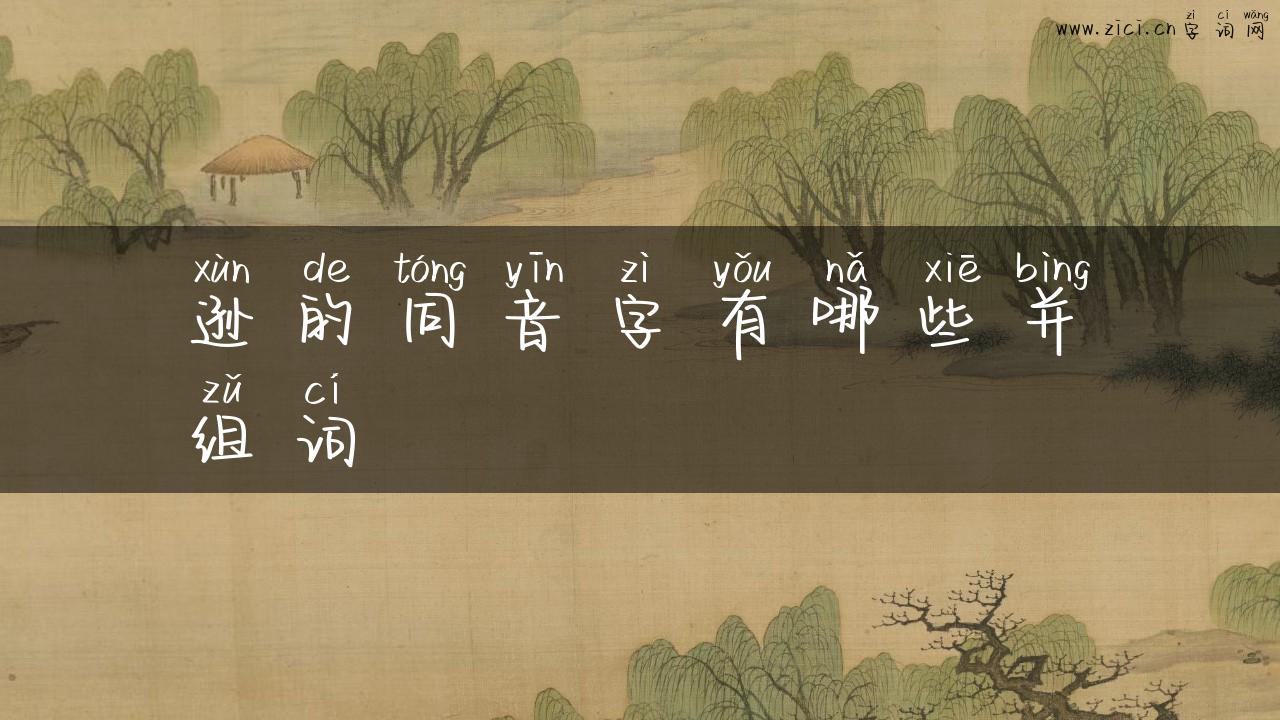 zì cí wǎng
www.zici.cn 字 词 网
xùn de tóng yīn zì yǒu nǎ xiē bìng
逊 的 同 音 字 有 哪 些 并
zǔ cí
组 词